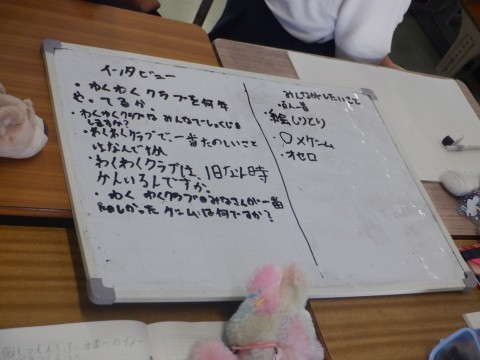 インタビュー
・わくわくクラブを何年
やってるか。
・わくわくクラブはみんなでしょくじを
しますか?
・わくわくクラブで、一番たのしいこと
はなんですか
・わくわくクラブは、1日なん時
かんいるんですか。
・わくわくクラブのみなさんが一番
かったゲームは何ですか?
みんながしたいこと
・絵しりとり
・○×ゲーム
・オセロ